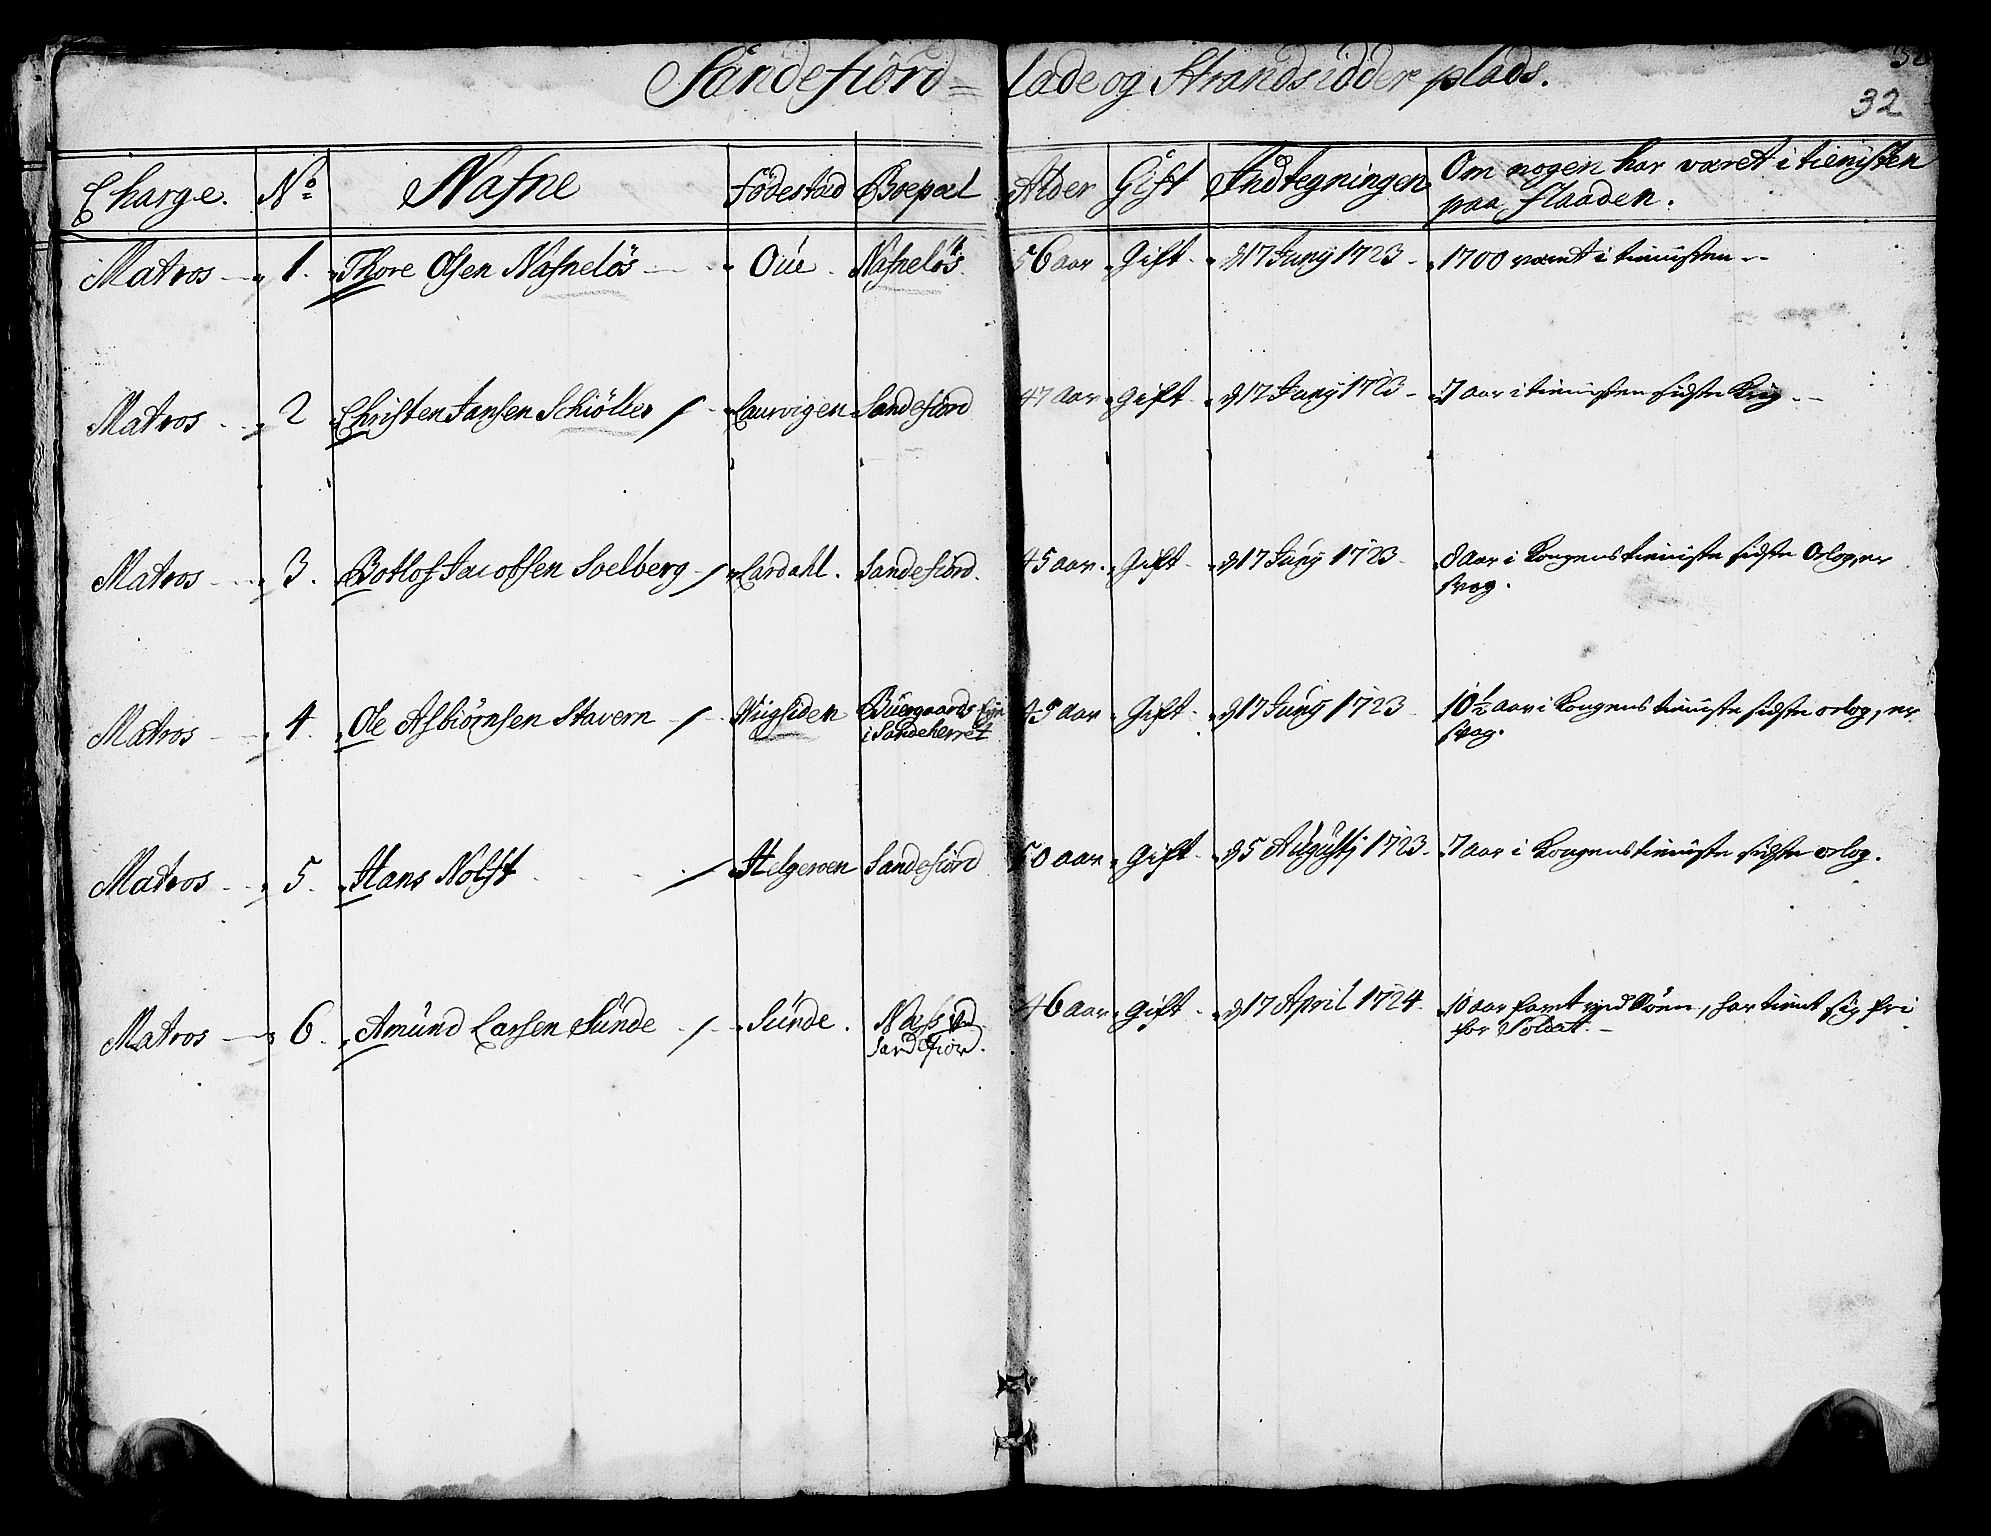 Sandefiord = lade og Strandsidder plads.
32
Charge. No Nafne Födestad Boepæl Alder Gift Indtegningen Om nogen har været i tienisten
paa flaaden.
Matros 1. Thore Olsen Nafnelös Oüe Nafnelös 56 aar Gift d 17 Juny 1723 1700 været i tienisten
Matros 2 Christen Jansen Schiöller Laurvigen Sandefiord 47 aar Gift d 17 Juny 1723 7 aar i tienisten sidste Krig
Matros 3. Botlof Jacobsen Soelberg Lardahl. Sandefiord. 45 aar. Gift d 17 Juny 1723 8 aar i Kongens tieniste sidste Orlog, er
svag.
Matros 4. Ole Asbiörnsen Stavern Buergaards 45 aar Gift d 17 Juny 1723 10½ aar i Kongens tieniste sidste orlog, er
i Sandeherret svag.
Matros 5. Hans Nolft Helgeroen Sandefiord 50 aar Gift d 5 Augustj 1723 7 aar i Kongens tieniste sidste orlog.
Matros 6. Amünd Larsen Sünde Sünde. Næss ved 46 aar Gift d 17 April 1724 10 aar faret ved Söen, har tient sig fri
Sandefiord. for Soldat